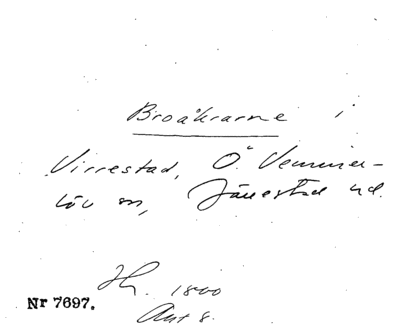 Broåkrarne i
Virrestad, Ö. Vemmen-
löv sn, Järrestad hd.
Hs. 1800
Akt 8.
Nr 7697.